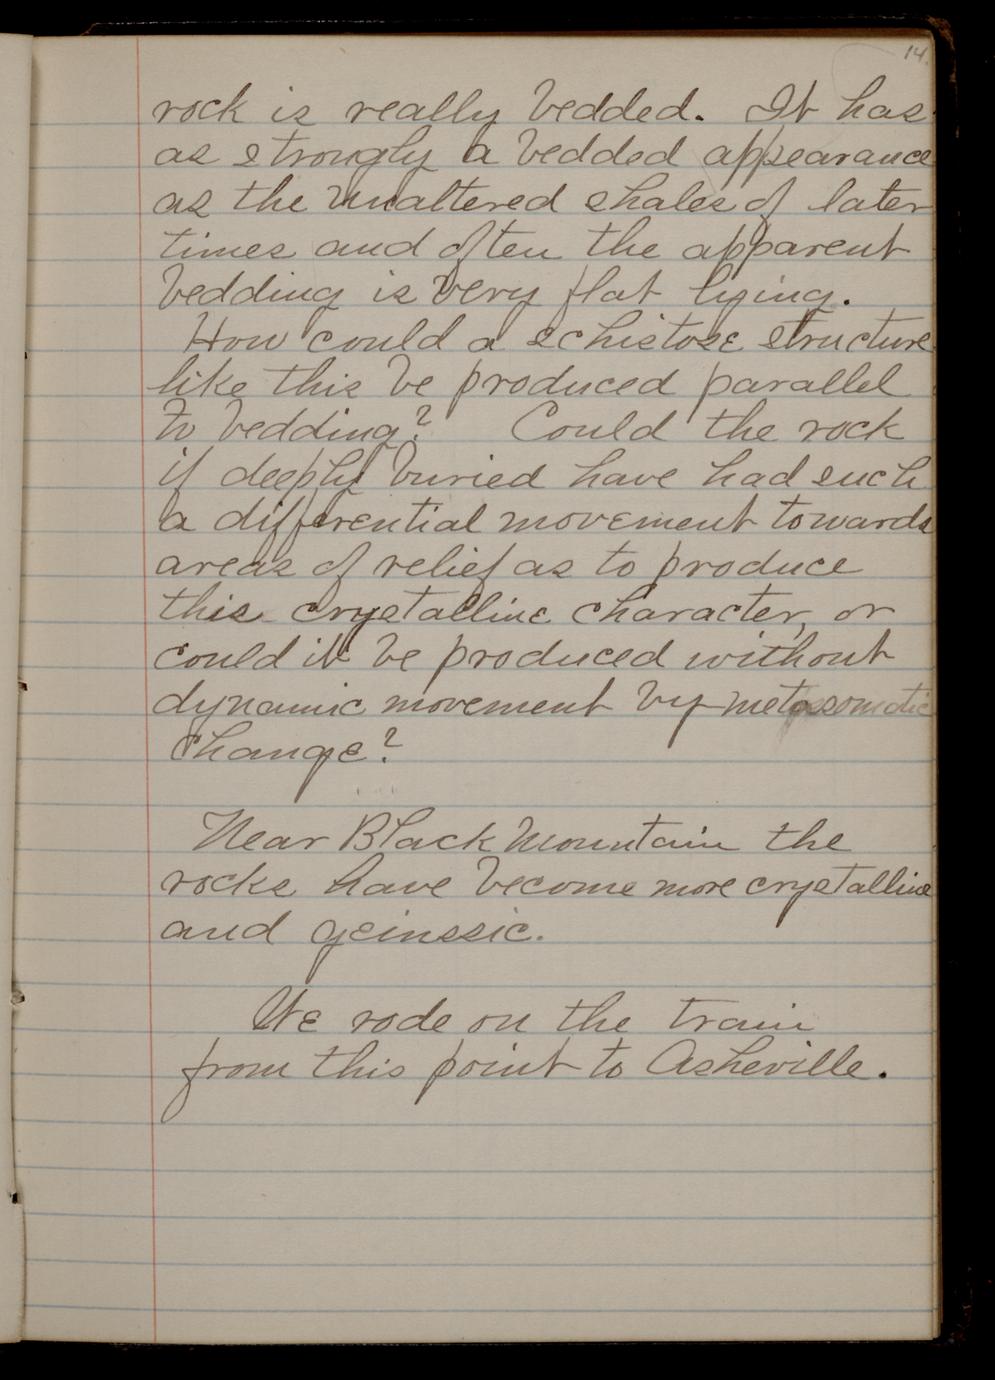 14.
rock is really bedded. It has
as strongly a bedded appearance
as the unaltered shales of later
times and often the apparent
bedding is very flat lying.
How could a schistose structure
like this be produced parallel
to bedding? Could the rock
if deeply buried have had such
a differential movement towards
areas of relief as to produce
this crystalline character, or
could it be produced without
dynamic movement by metasomatic
change?
Near Black Mountain the
rocks have become more crystalline
and geinssic.
We rode on the train
from this point to Asheville.